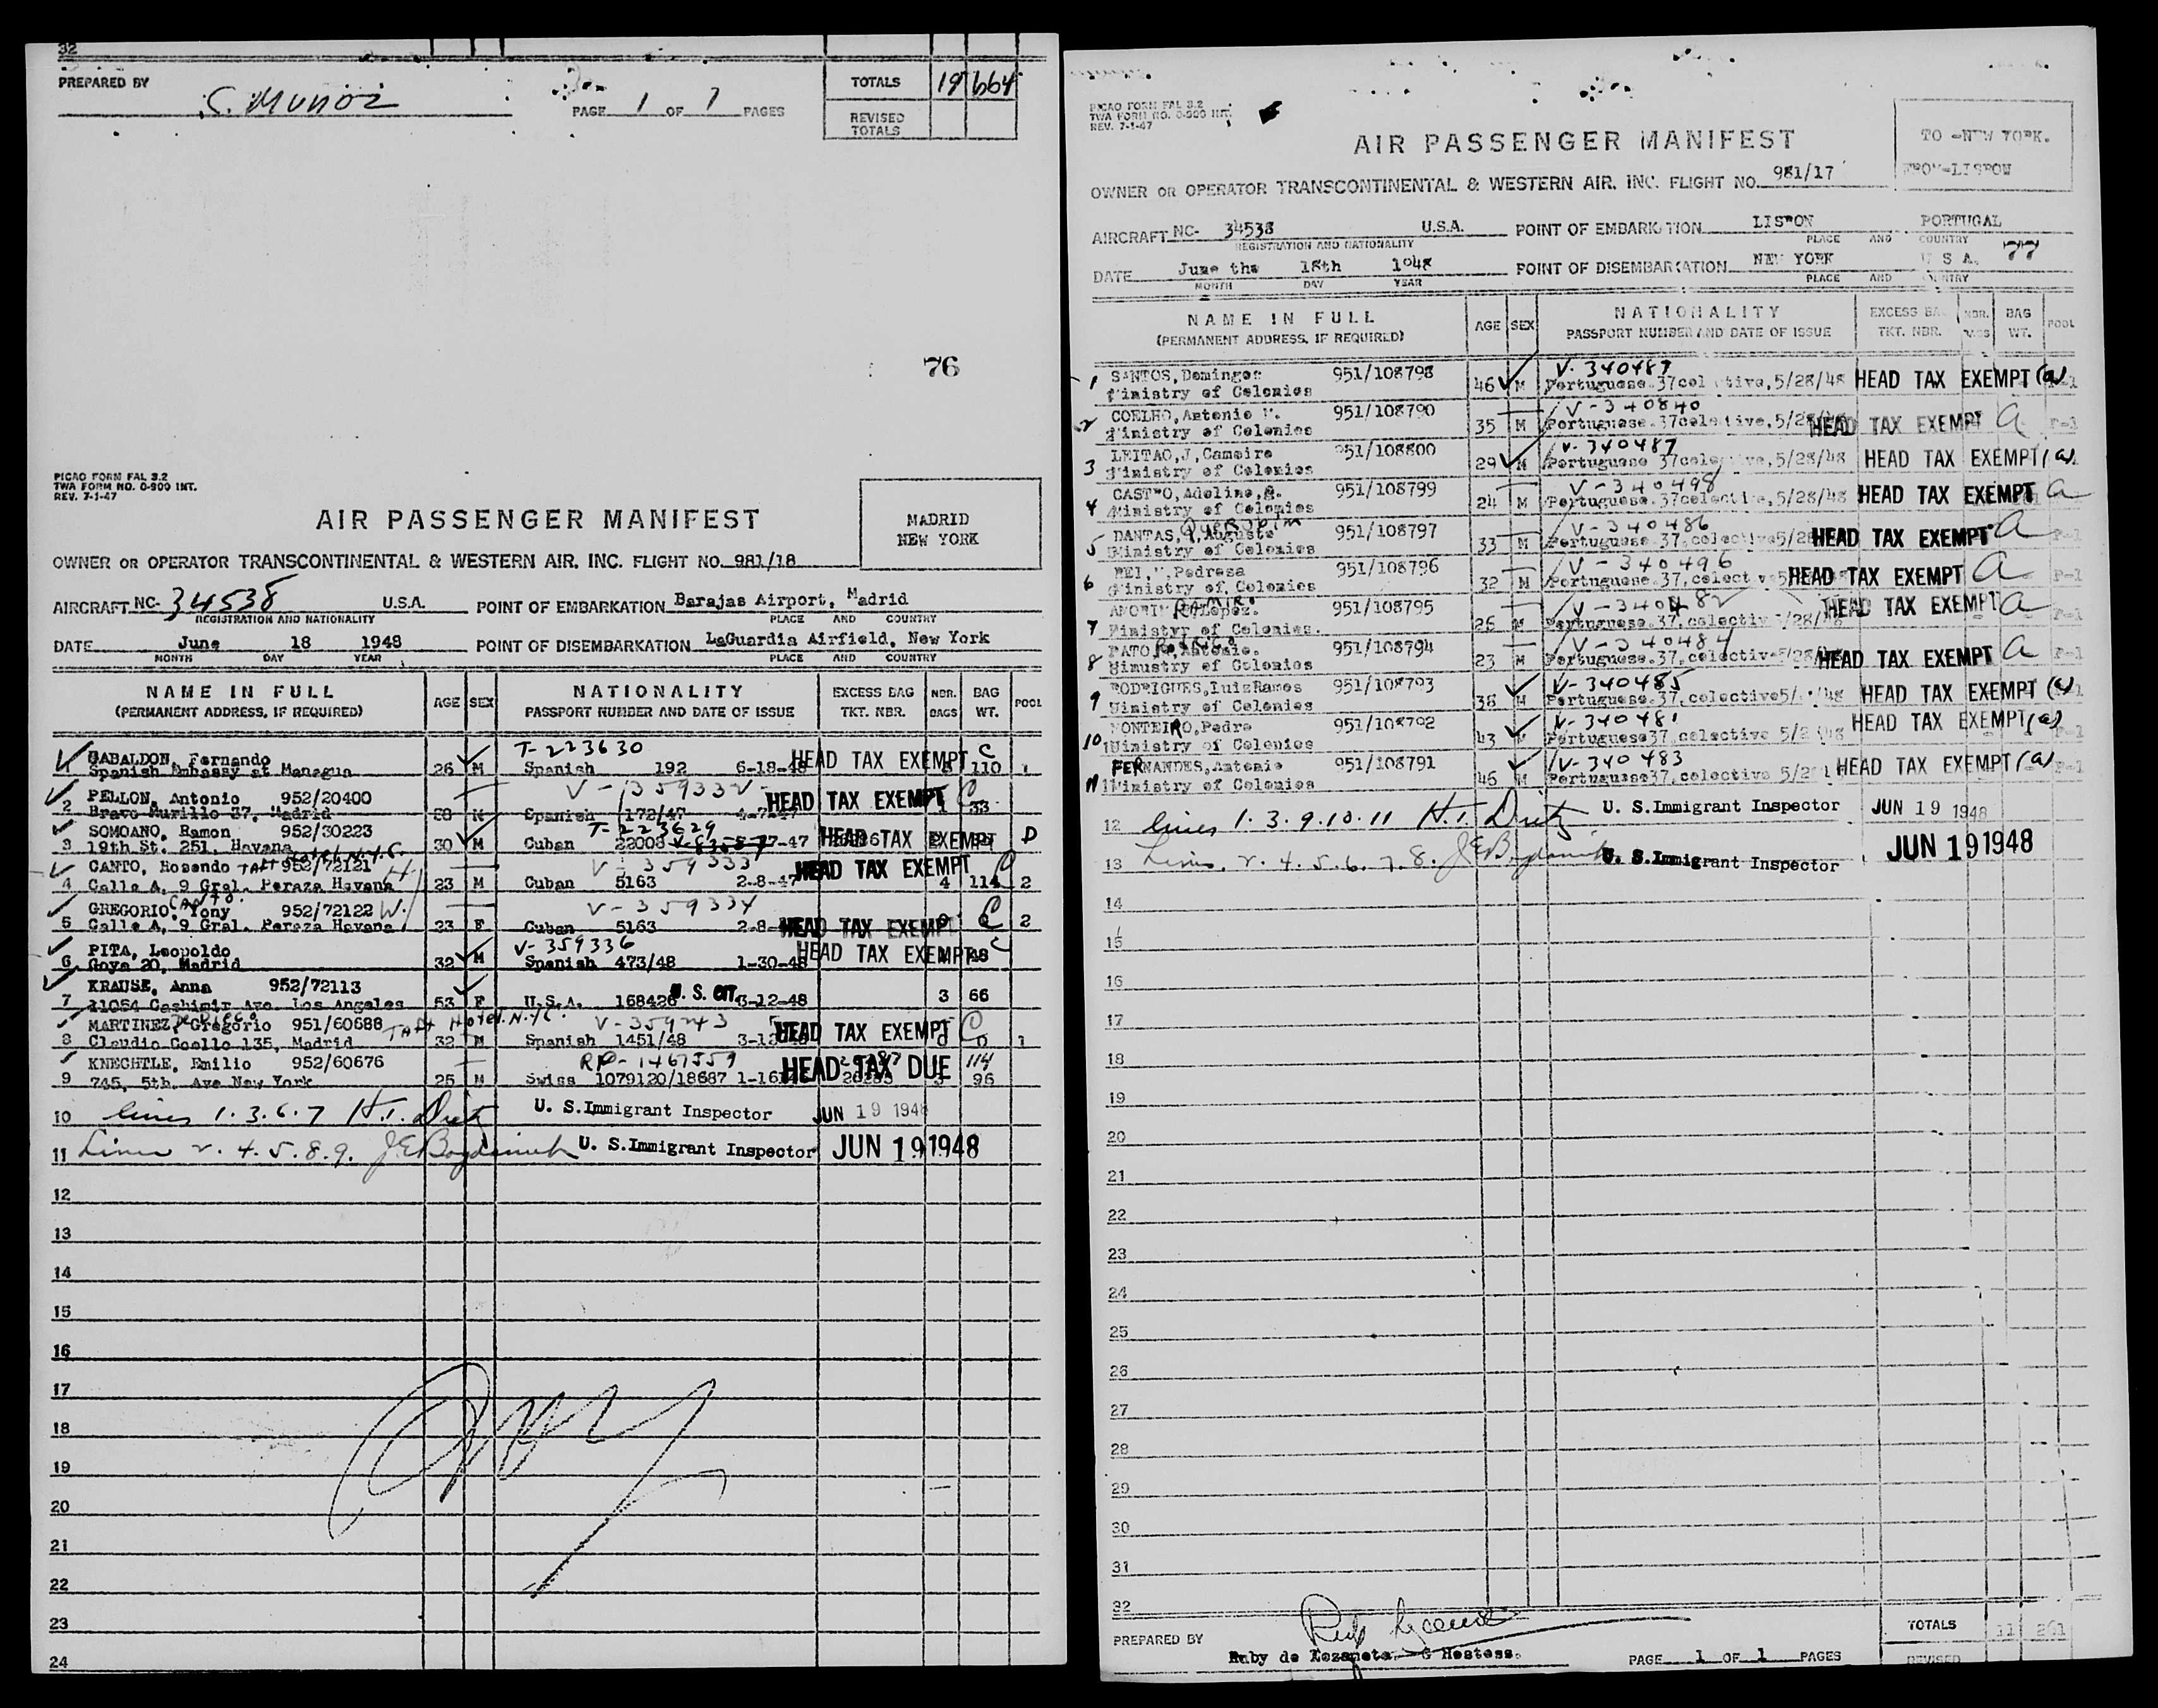 32
PREPARED BY S. Munoz PAGE 1 OF 1 PAGES TOTALS 19 664
REVISED TOTALS
76
PICAO FORM FAL 3.2
TWA FORM NO. 0-900 INT.
REV. 7-1-47
AIR PASSENGER MANIFEST
MADRID
NEW YORK
OWNER OR OPERATOR TRANSCONTINENTAL & WESTERN AIR, INC. FLIGHT NO. 981/18
AIRCRAFT NC- 34538 U.S.A. POINT OF EMBARKATION Barajas Airport, Madrid
REGISTRATION AND NATIONALITY PLACE AND COUNTRY
DATE June 18 1948 POINT OF DISEMBARKATION LaGuardia Airfield, New York
MONTH DAY YEAR PLACE AND COUNTRY
NAME IN FULL AGE SEX NATIONALITY EXCESS BAG NBR. BAG POOL
(PERMANENT ADDRESS, IF REQUIRED) PASSPORT NUMBER AND DATE OF ISSUE TKT. NBR. BAGS WT.
GABALDON, Fernando T-223630 HEAD TAX EXEMPT C
1 Spanish Embassy at Managua 26 M Spanish 192 6-18-48 110 1
PELLON, Antonio 952/20400 V-359332 HEAD TAX EXEMPT C
2 Bravo Murillo 37, Madrid M Spanish 172/47 33
SOMOANO, Ramon 952/30223 T-223629 HEAD TAX EXEMPT D
3 19th St. 251, Havana 30 M Cuban 22008
CANTO, Rosendo 952/72121 H V-359333 HEAD TAX EXEMPT C
4 Calle A, 9 Gral. Peraza Havana 23 M Cuban 5163 2-8-47 4 114 2
CANTO
GREGORIO, Tony 952/72122 W. V-359334 C
5 Calle A, 9 Gral. Peraza Havana 23 F Cuban 5163 2-8- HEAD TAX EXEMPT 2
PITA, Leopoldo V-359336 HEAD TAX EXEMPT C
6 Goya 20, Madrid 32 M Spanish 473/48 1-30-48
KRAUSE, Anna 952/72113 U. S. CIT.
7 11054 Cashimir Ave. Los Angeles 53 F U.S.A. 168426 3-12-48 3 66
MARTINEZ, Gregorio 951/60688 Taft Hotel N.Y.C. V-359243 HEAD TAX EXEMPT C
8 Claudio Coello 135, Madrid 32 M Spanish 1451/48 0 1
KNECHTLE, Emilio 952/60676 RP-1467559 HEAD TAX DUE 114
9 745, 5th. Ave New York 25 M Swiss 1079120/18687 96
10 lines 1.3.6.7 H.I. Dietz U. S. Immigrant Inspector JUN 19 1948
11 Lines 2.4.5.8.9. U. S. Immigrant Inspector JUN 19 1948
12
13
14
15
16
17
18
19
20
21
22
23
24
PICAO FORM FAL 3.2
TWA FORM NO. 0-900 INT.
REV. 7-1-47
AIR PASSENGER MANIFEST
TO -NEW YORK.
FROM-LISBON
OWNER OR OPERATOR TRANSCONTINENTAL & WESTERN AIR, INC. FLIGHT NO. 981/17
AIRCRAFT NC- 34538 U.S.A. POINT OF EMBARKATION LISBON PORTUGAL
REGISTRATION AND NATIONALITY PLACE AND COUNTRY
77
DATE June the 18th 1948 POINT OF DISEMBARKATION NEW YORK U S A.
MONTH DAY YEAR PLACE AND COUNTRY
NAME IN FULL AGE SEX NATIONALITY EXCESS BAG NBR. BAG POOL
(PERMANENT ADDRESS, IF REQUIRED) PASSPORT NUMBER AND DATE OF ISSUE TKT. NBR. BAGS WT.
1 SANTOS, Domingos 951/108798 V-340487
Ministry of Colonies 46 M Portuguese.37colective,5/28/48 HEAD TAX EXEMPT (a)
2 COELHO, Antonio 951/108790 V-340840
Ministry of Colonies 35 M Portuguese.37colective,5/28/48 HEAD TAX EXEMPT a
LEITAO,J,Cameira 951/108800 V-340487
3 Ministry of Colonies 29 M Portuguese 37colective,5/28/48 HEAD TAX EXEMPT (a)
CASTRO, Adelino, 951/108799 V-340498
4 Ministry of Colonies 24 M Portuguese.37colective,5/28/48 HEAD TAX EXEMPT a
DANTAS, Auguste 951/108797 V-340486
5 Ministry of Colonies 33 M Portuguese 37,colective5/28 HEAD TAX EXEMPT a
REI, Pedrosa 951/108796 V-340496
6 Ministry of Colonies 32 M Portuguese 37,colective5 HEAD TAX EXEMPT a P-1
AMORIM Lopez. 951/108795 V-340482
7 Ministyr of Colonies. 26 M Portuguese.37,colectiv 5/28/48 HEAD TAX EXEMPT a
PATO, Antonio. 951/108794 V-340484
8 Minustry of Colonies 23 M Portuguese.37,colective5/28/48 HEAD TAX EXEMPT a
RODRIGUES,LuizRamos 951/108793 V-340485
9 Ministry of Colonies 38 M Portuguese 37, colective5/ /48 HEAD TAX EXEMPT (a)
MONTEIRO,Pedro 951/108792 V-340481
10 Ministry of Colonies 43 M Portuguese37,colective 5/2 /48 HEAD TAX EXEMPT (a)
FERNANDES,Antonio 951/108791 V-340483
11 Ministry of Colonies 46 M Portuguese37,colective 5/2 HEAD TAX EXEMPT (a)
12 lines 1.3.9.10.11 H.I. Dietz U. S. Immigrant Inspector JUN 19 1948
13 Lines. 2.4.5.6.7.8. U. S. Immigrant Inspector JUN 19 1948
14
15
16
17
18
19
20
21
22
23
24
25
26
27
28
29
30
31
32
PREPARED BY TOTALS 11 261
Ruby de Lozaneta G Hostess. PAGE 1 OF 1 PAGES REVISED